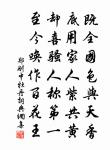 既全國色與天香
底用人家紫共黃
却喜騷人稱第一
至今喚作百花王
鄭剛中牡丹